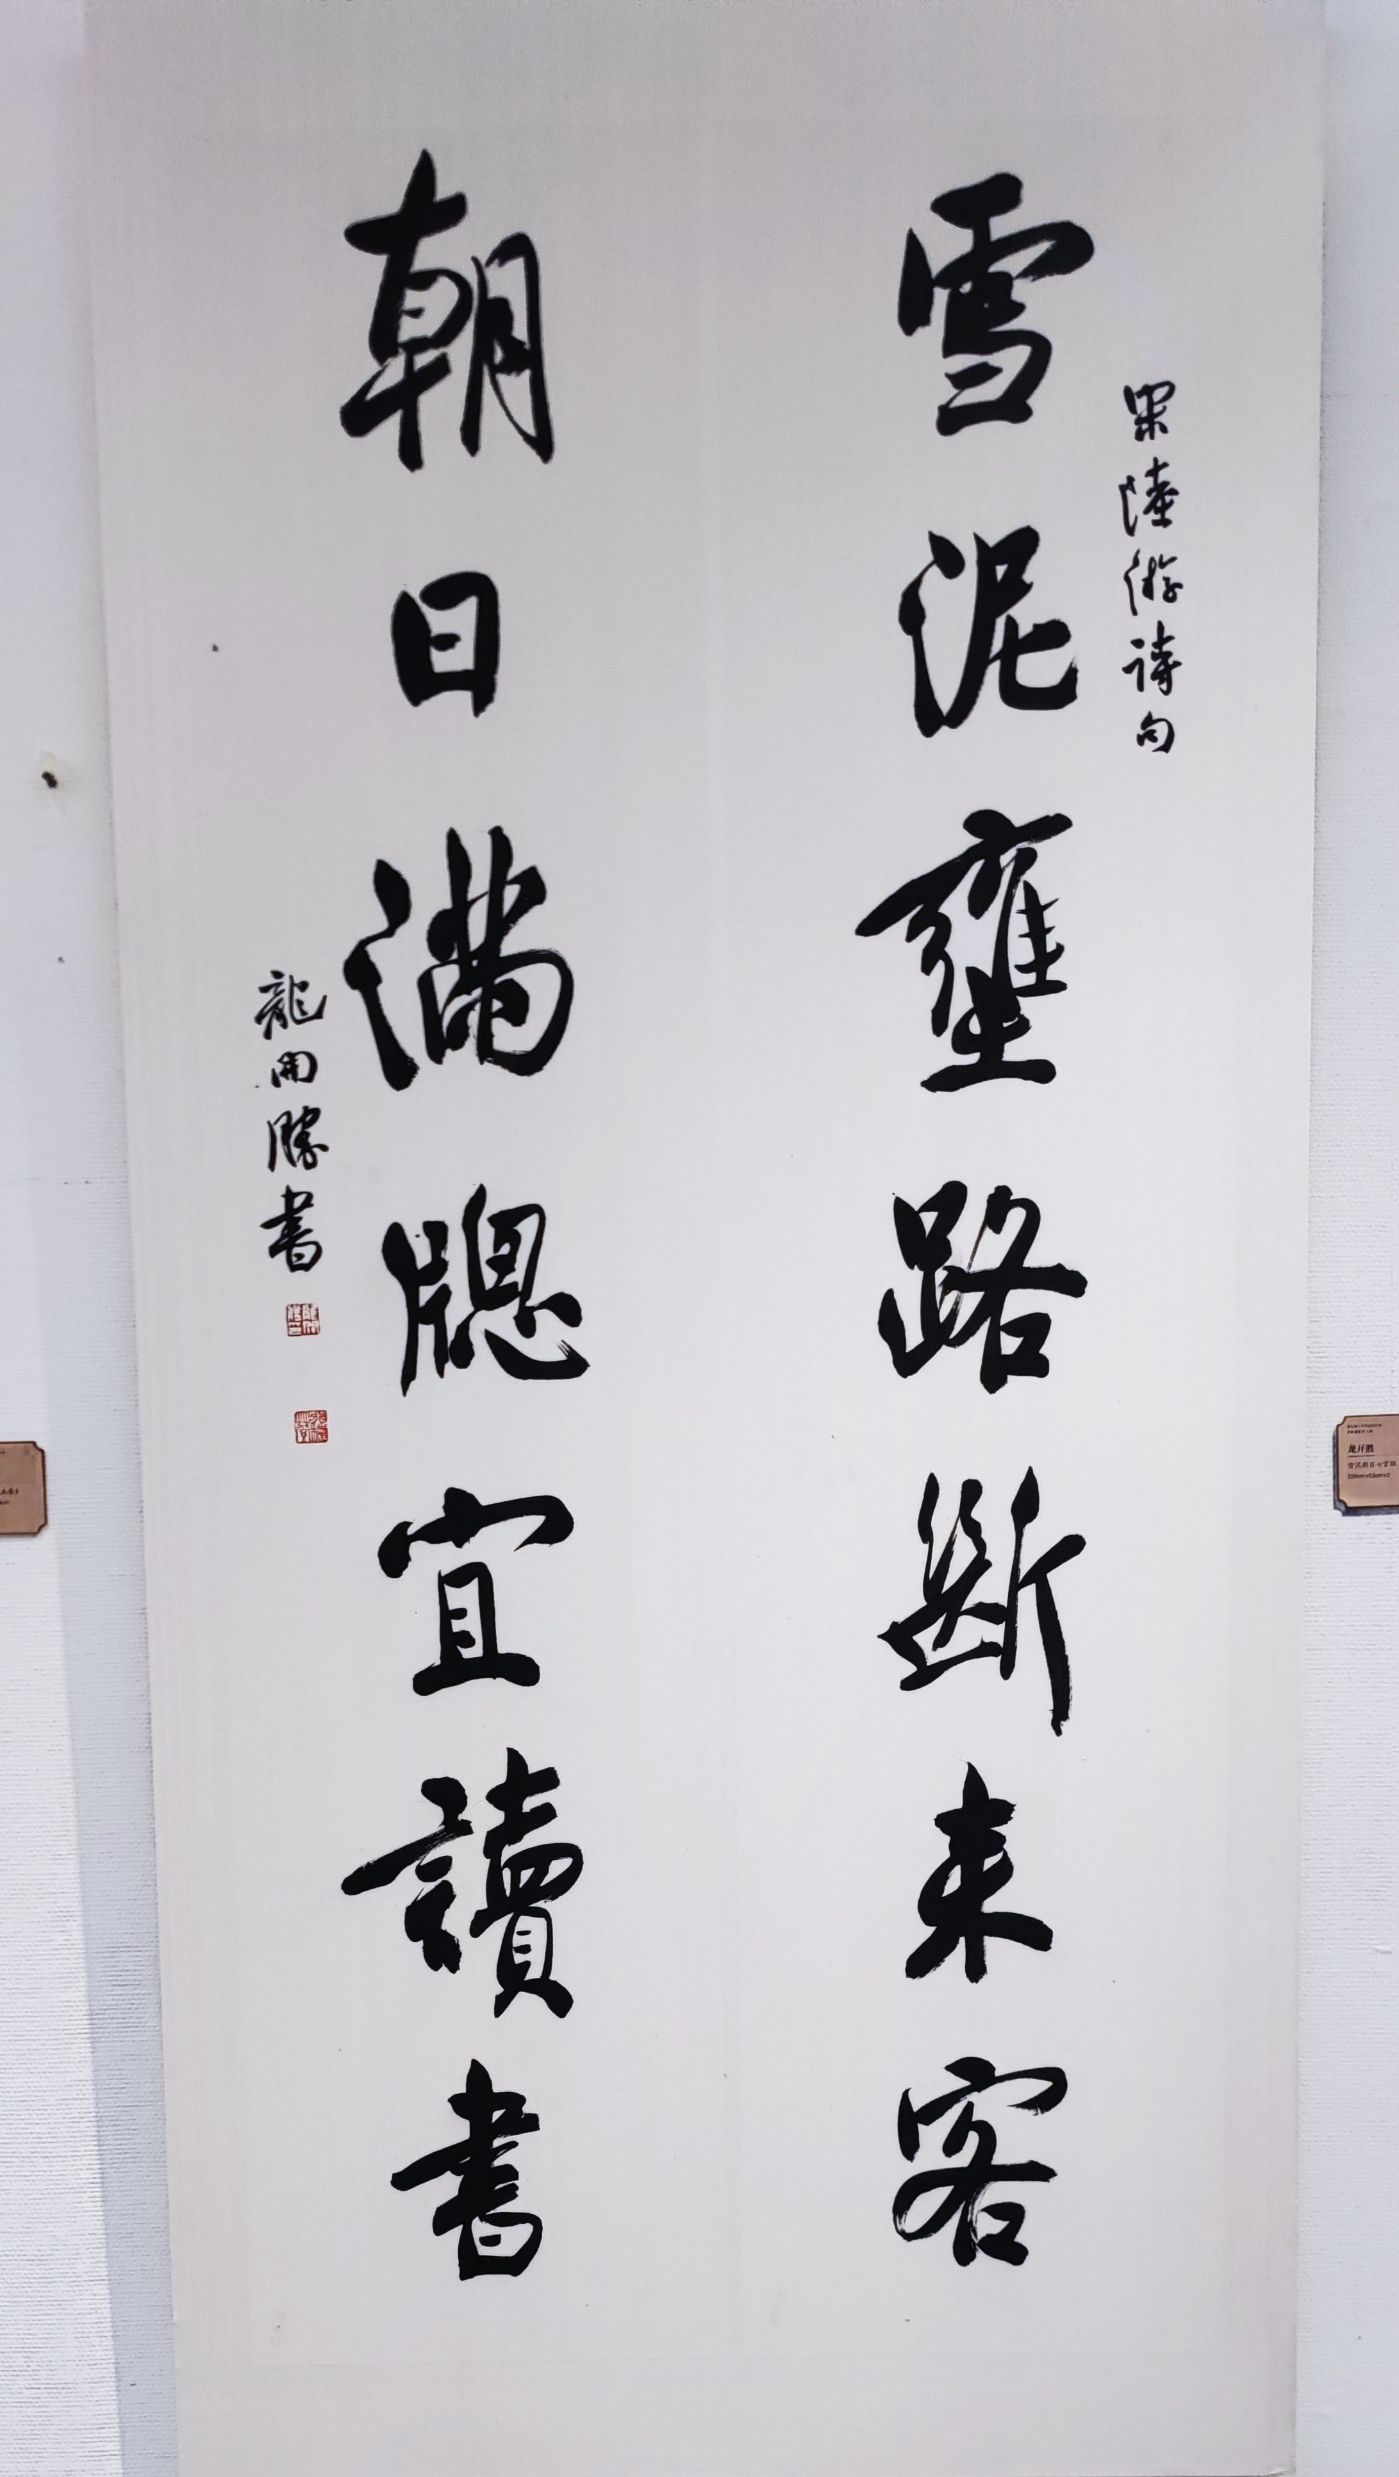 集陸游詩句
雪泥壅路斷来客
朝日滿牕宜讀書
龍開勝書
龙开胜
雪泥朝日七言联